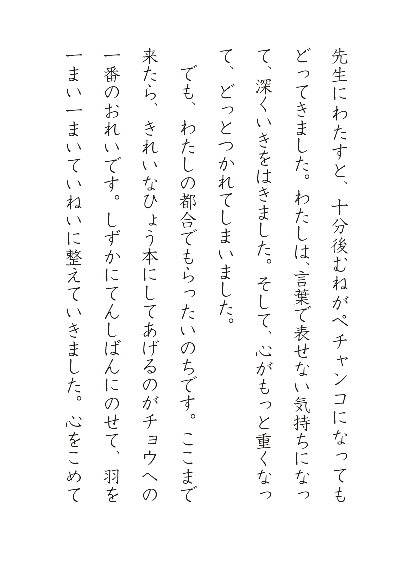 先生にわたすと、十分後むねがペチャンコになっても
どってきました。わたしは、言葉で表せない気持ちになっ
て、深くいきをはきました。そして、心がもっと重くなっ
て、どっとつかれてしまいました。
でも、わたしの都合でもらったいのちです。ここまで
来たら、きれいなひょう本にしてあげるのがチョウへの
一番のおれいです。しずかにてんしばんにのせて、羽を
一まい一まいていねいに整えていきました。心をこめて